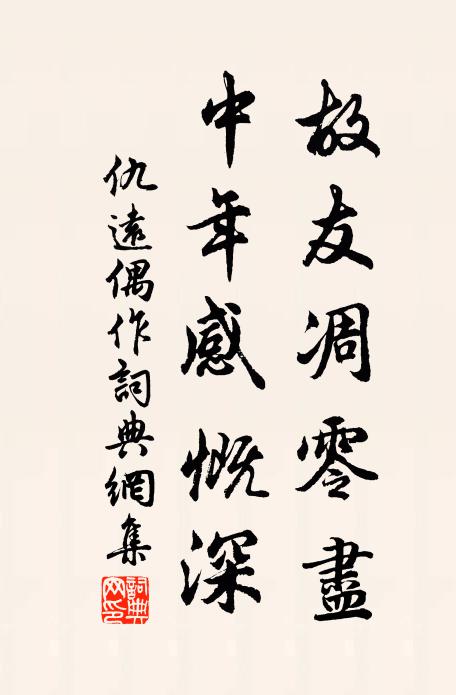 故友凋零盡
中年感慨深
仇遠偶作詞典網集
詞典網印